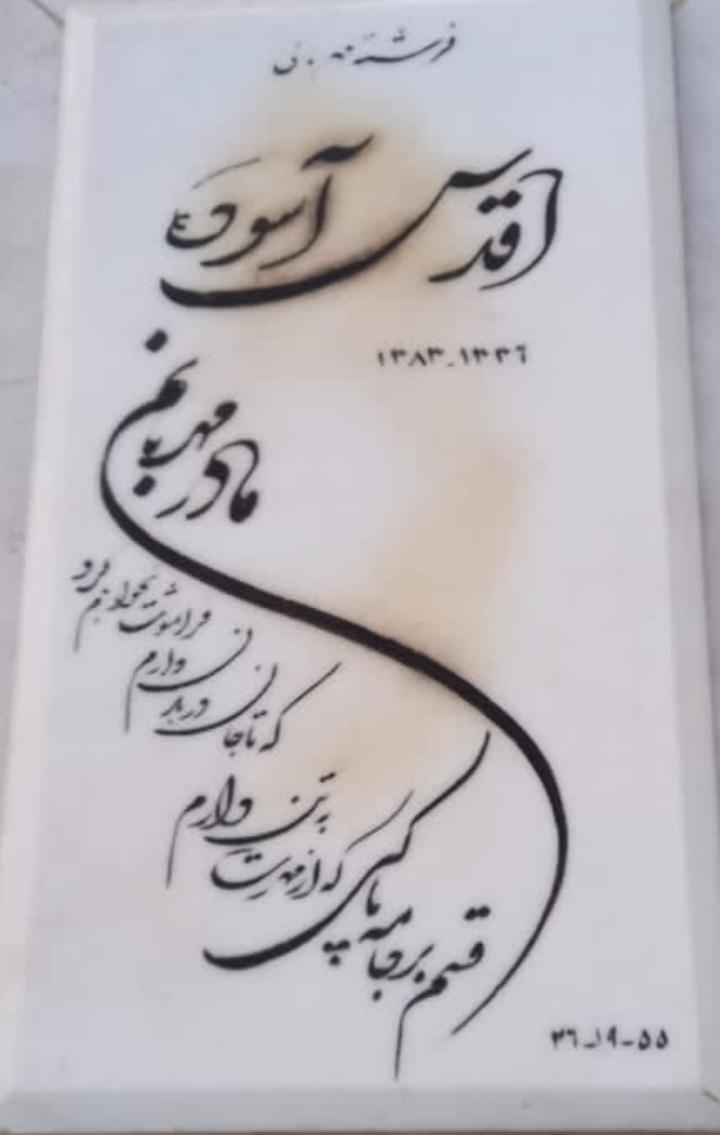 فرشته مهربانی
اقدس آسوده
۱۳۸۳-۱۳۳۶
مادر مهربانم
قسم بر جامه پاکی
که از مهرت
به تن دارم
که تا جان
در بدن دارم
فراموشت نخواهم کرد
۳۶-۱۹-۵۵